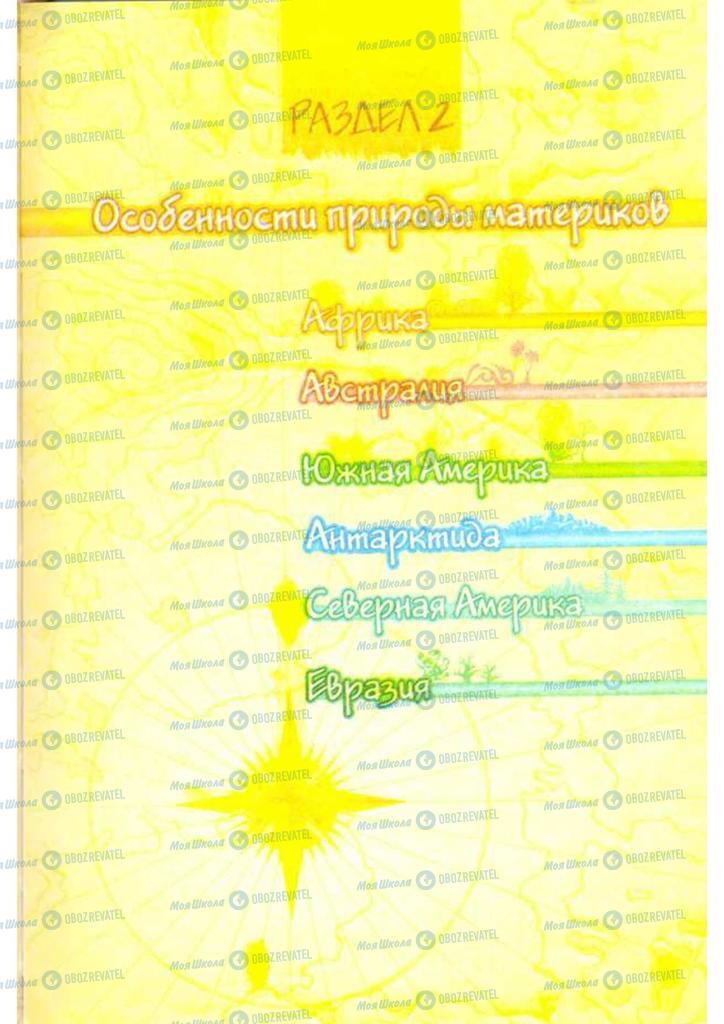 РАЗДЕЛ 2
Особенности природы материков
Африка
Австралия
Южная Америка
Антарктида
Северная Америка
Евразия
Моя Школа OBOZREVATEL